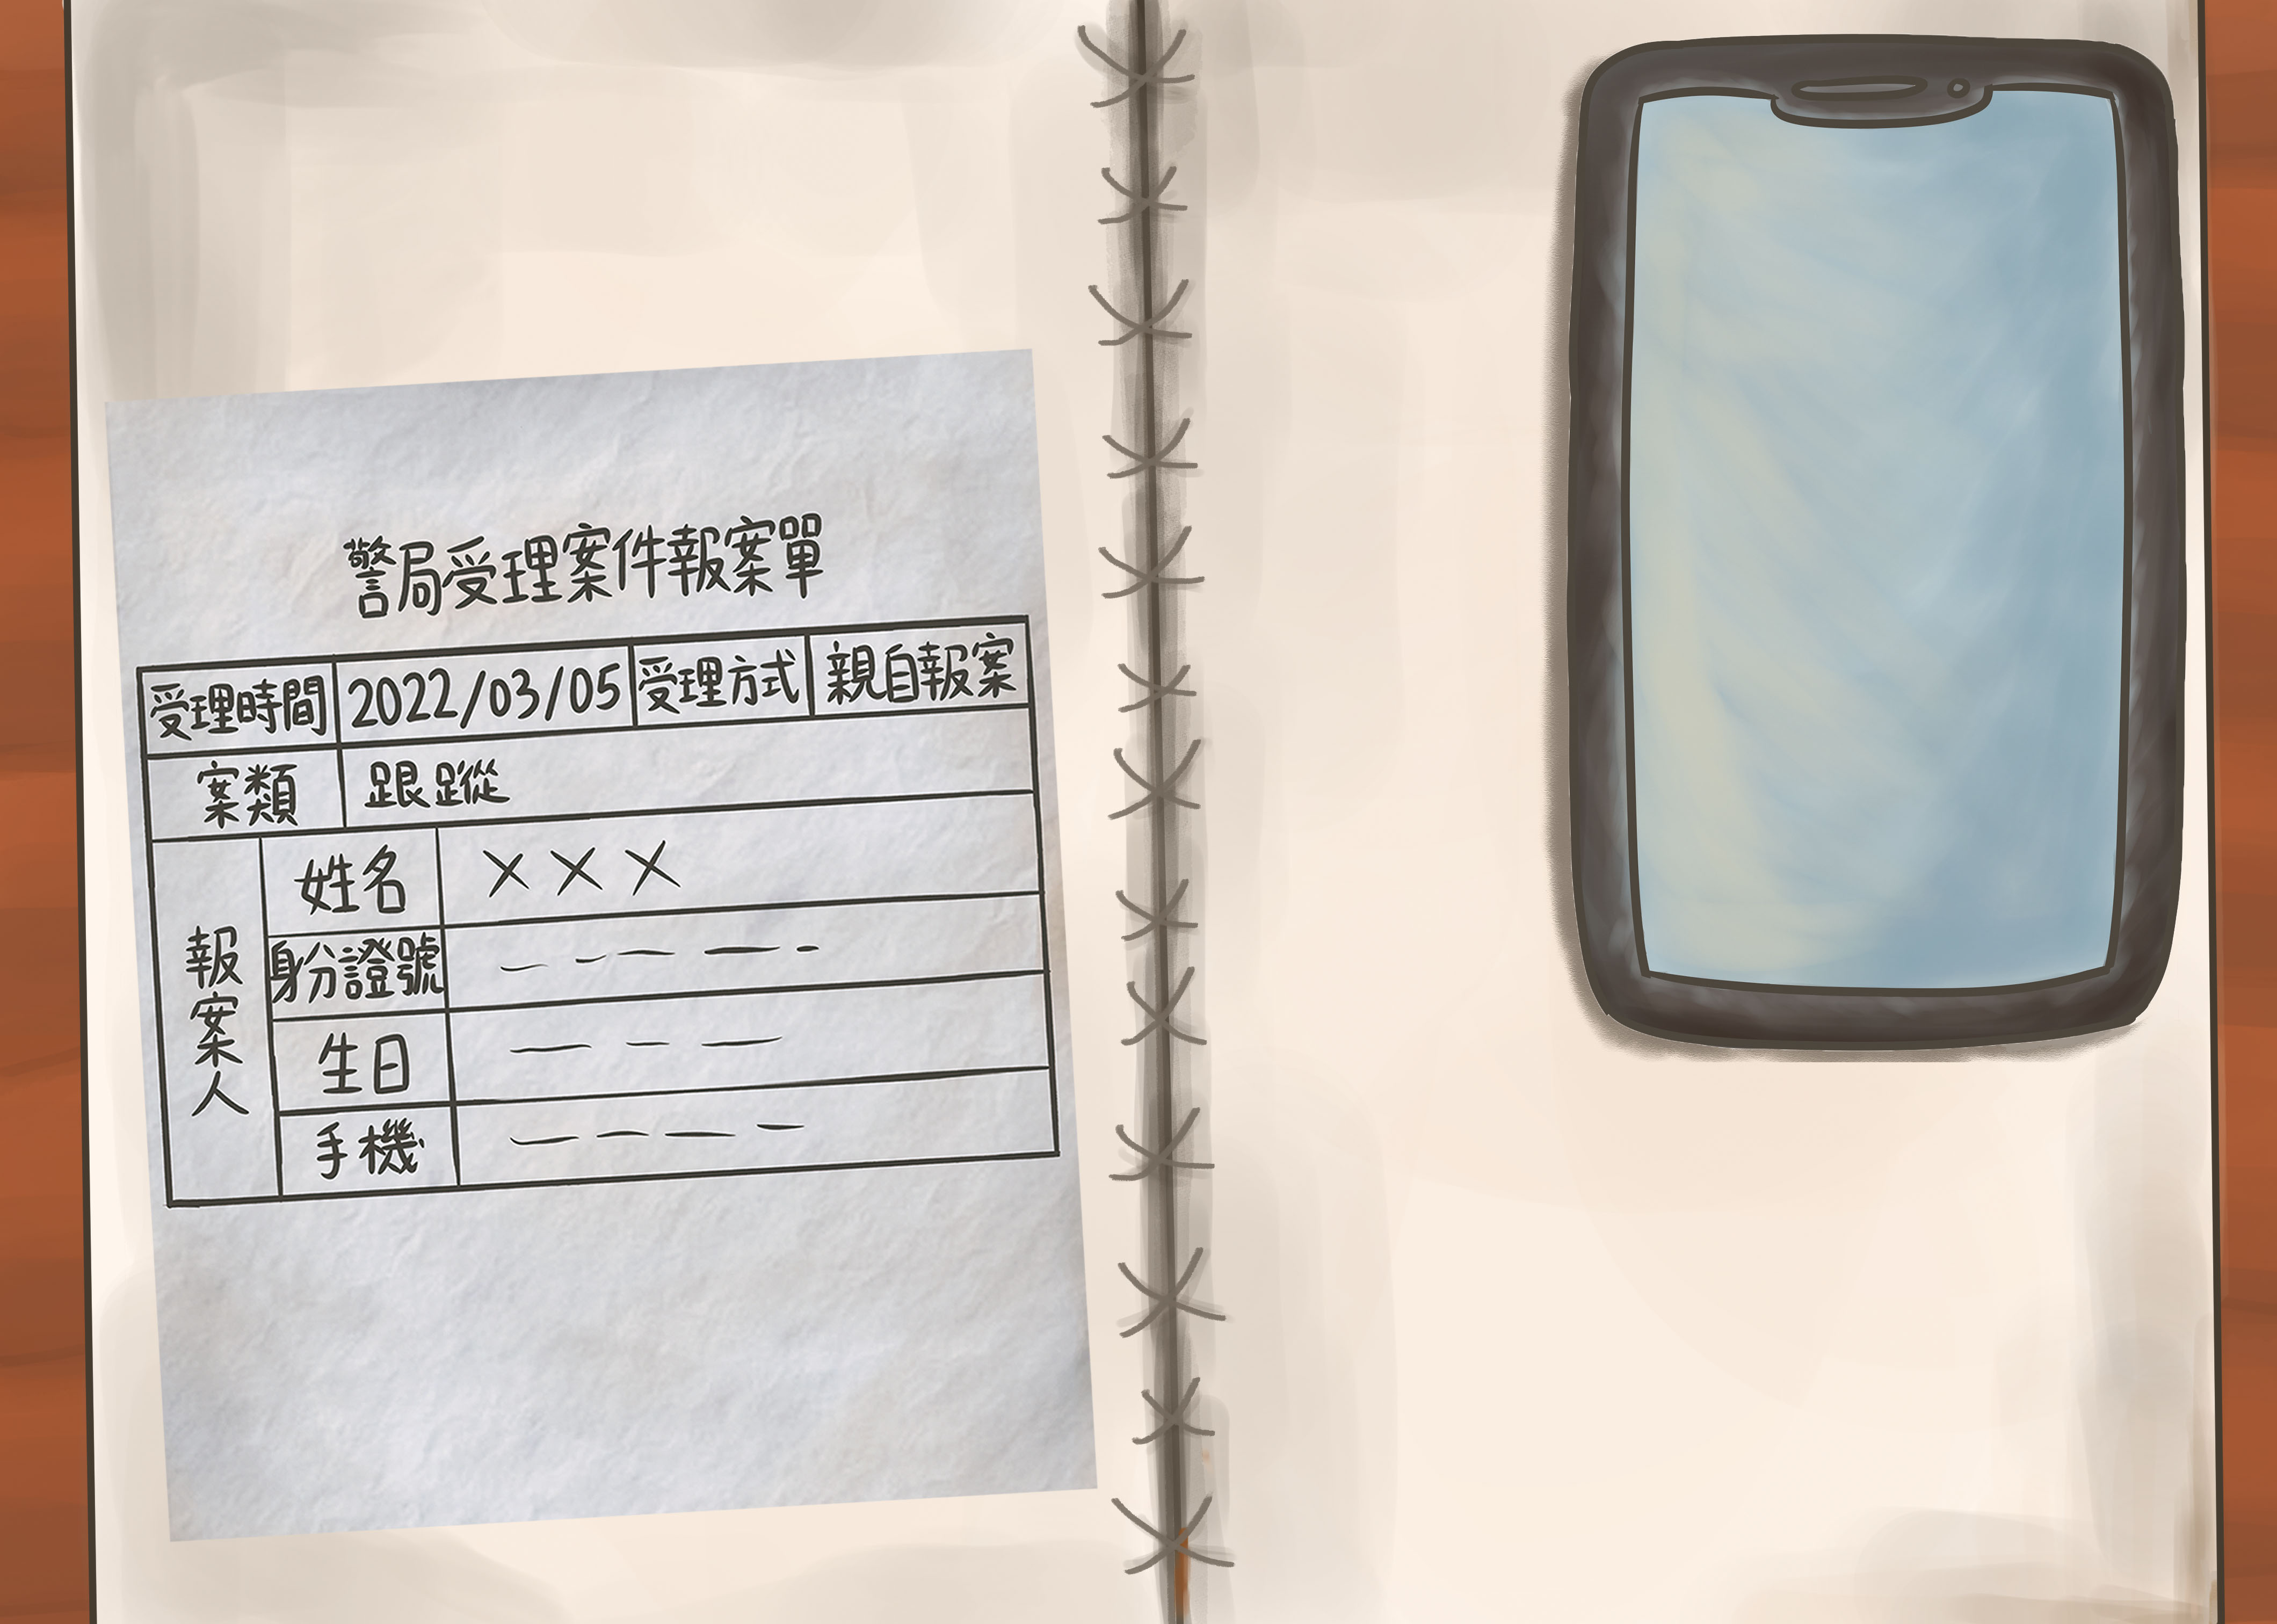 警局受理案件報案單
受理時間 2022/03/05 受理方式 親自報案
案類 跟蹤
報案人
姓名 XXX
身份證號
生日
手機